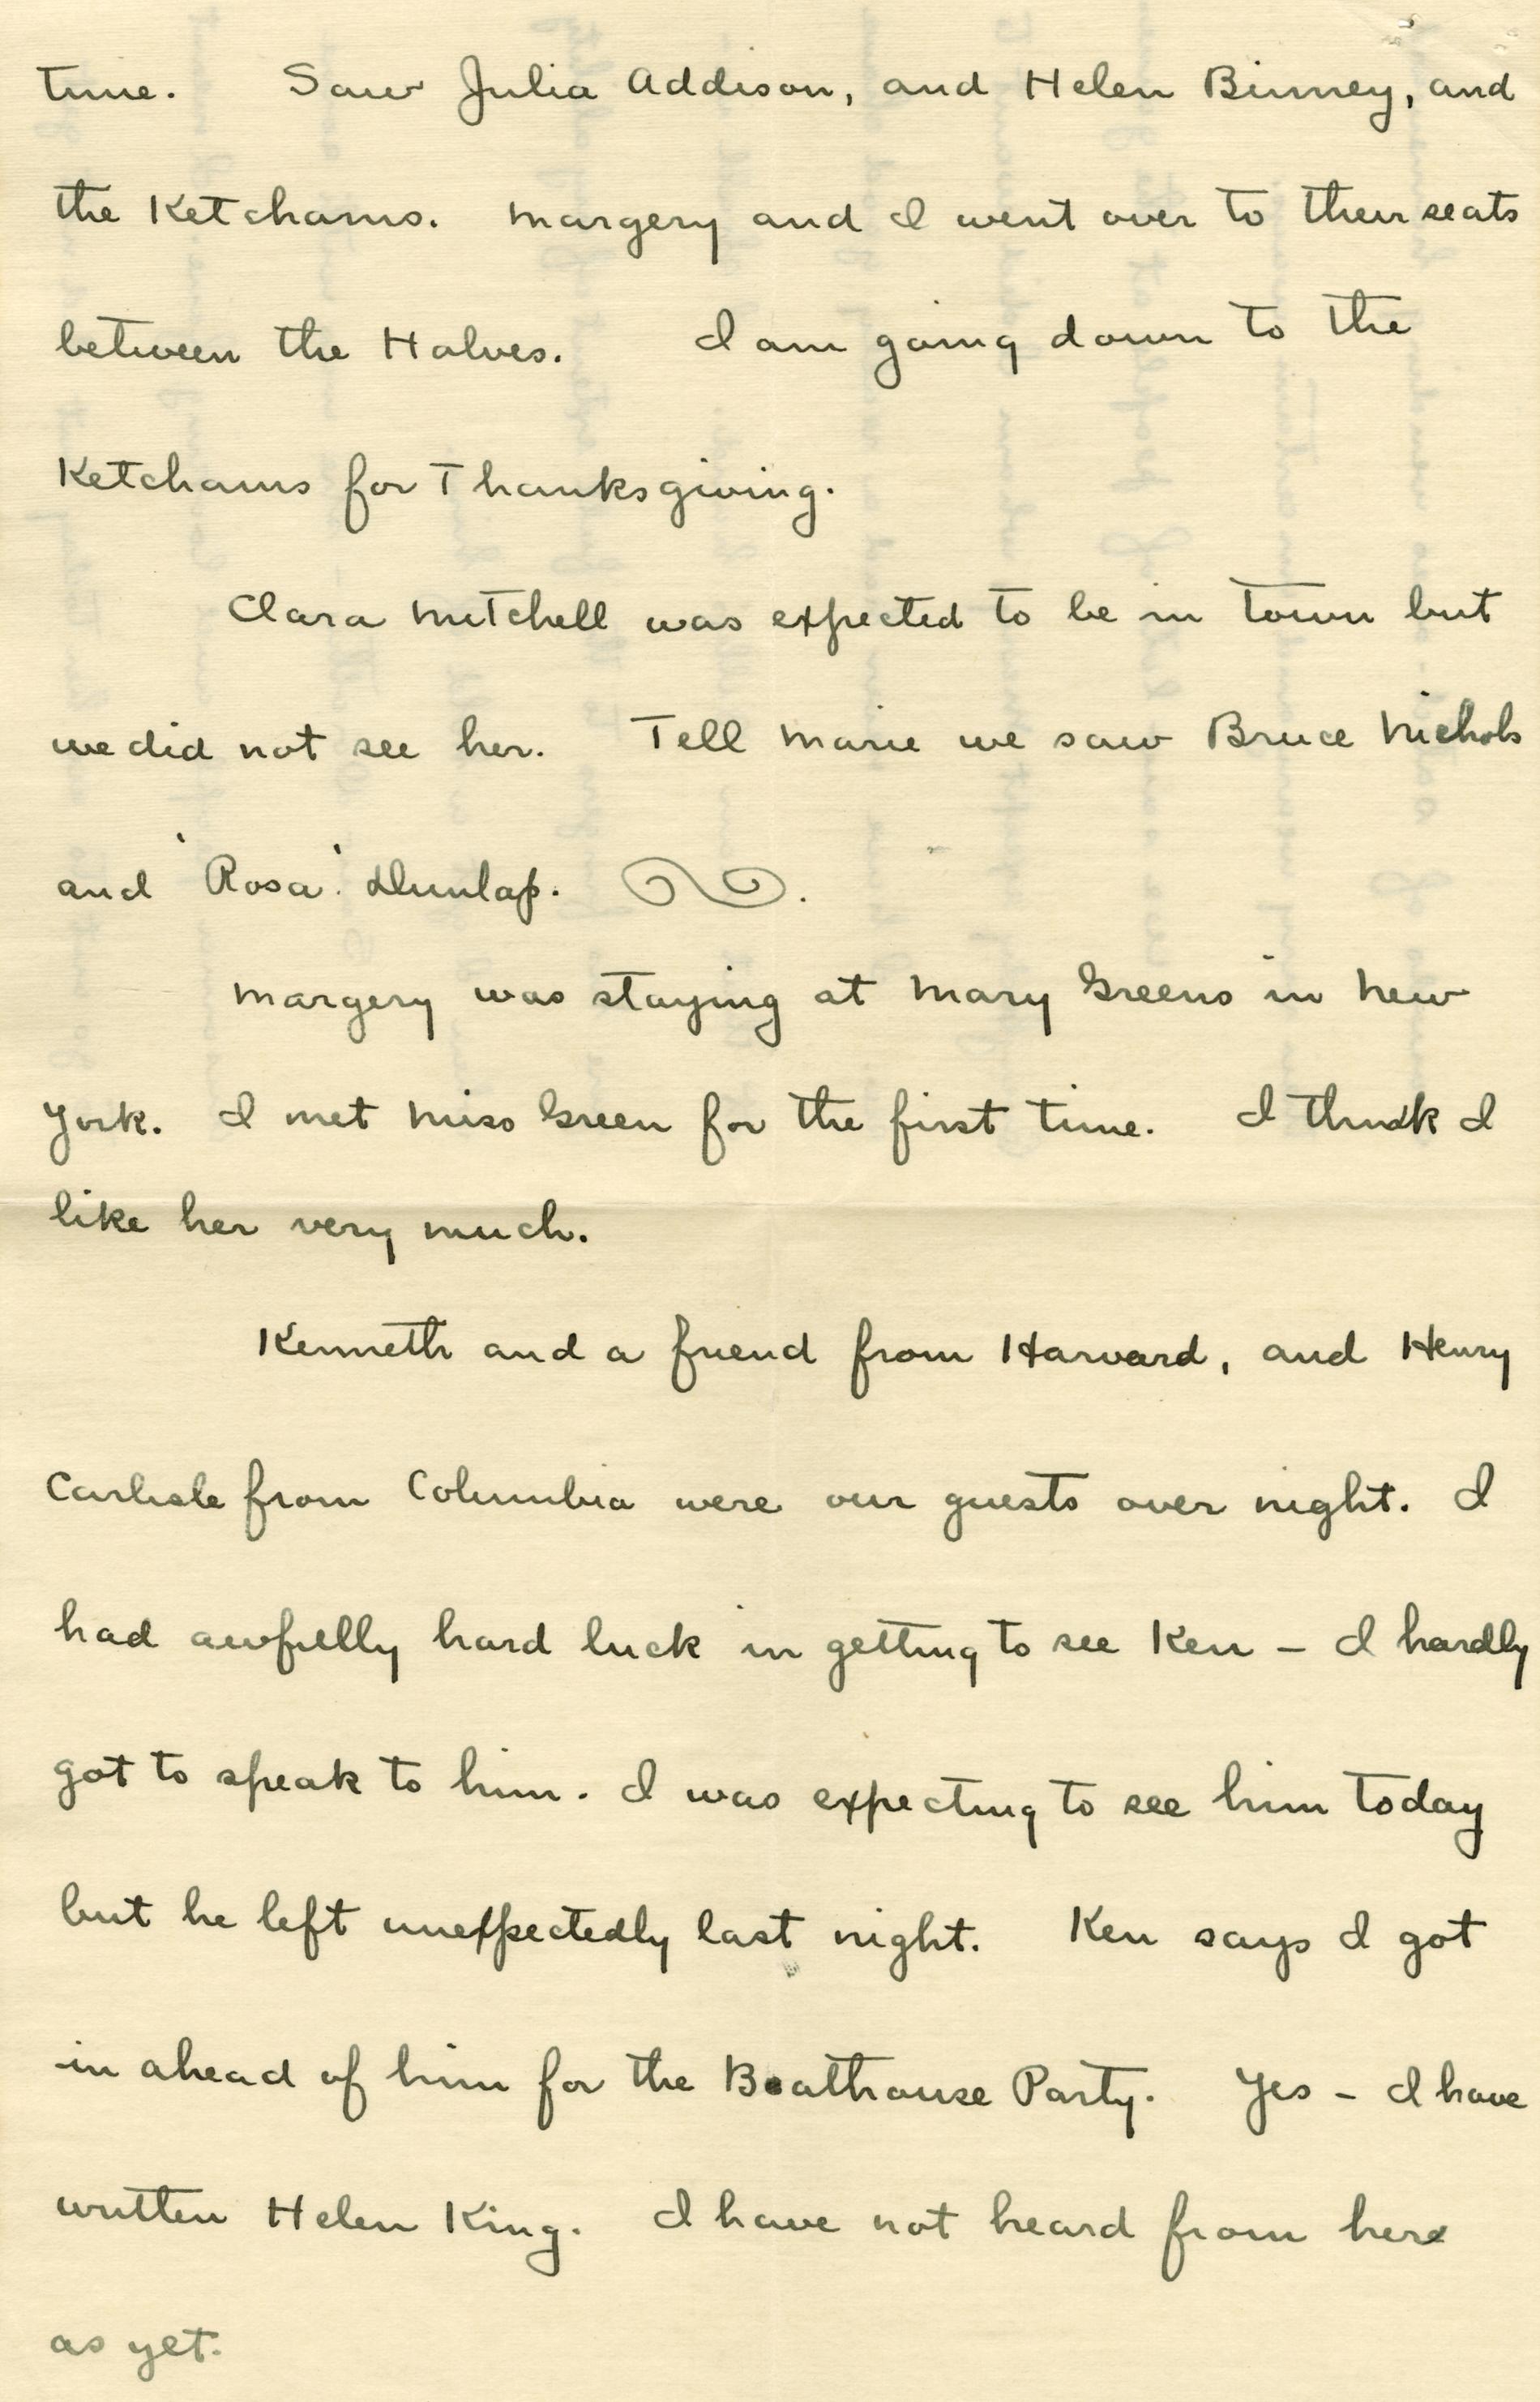 time. Saw Julia Addison, and Helen Binney, and
the Ketchams. Margery and I went over to their seats
between the Halves. I am going down to the
Ketchams for Thanksgiving.
Clara Mitchell was expected to be in town but
we did not see her. Tell Marie we saw Bruce Nichols
and 'Rosa'. Dunlap.
Margery was staying at Mary Greens in New
York. I met Miss Green for the first time. I think I
like her very much.
Kenneth and a friend from Harvard, and Henry
Carlisle from Columbia were our guests over night. I
had awfully hard luck in getting to see Ken – I hardly
got to speak to him. I was expecting to see him today
but he left unexpectedly last night. Ken says I got
in ahead of him for the Boathouse Party. Yes – I have
written Helen King. I have not heard from her
as yet.